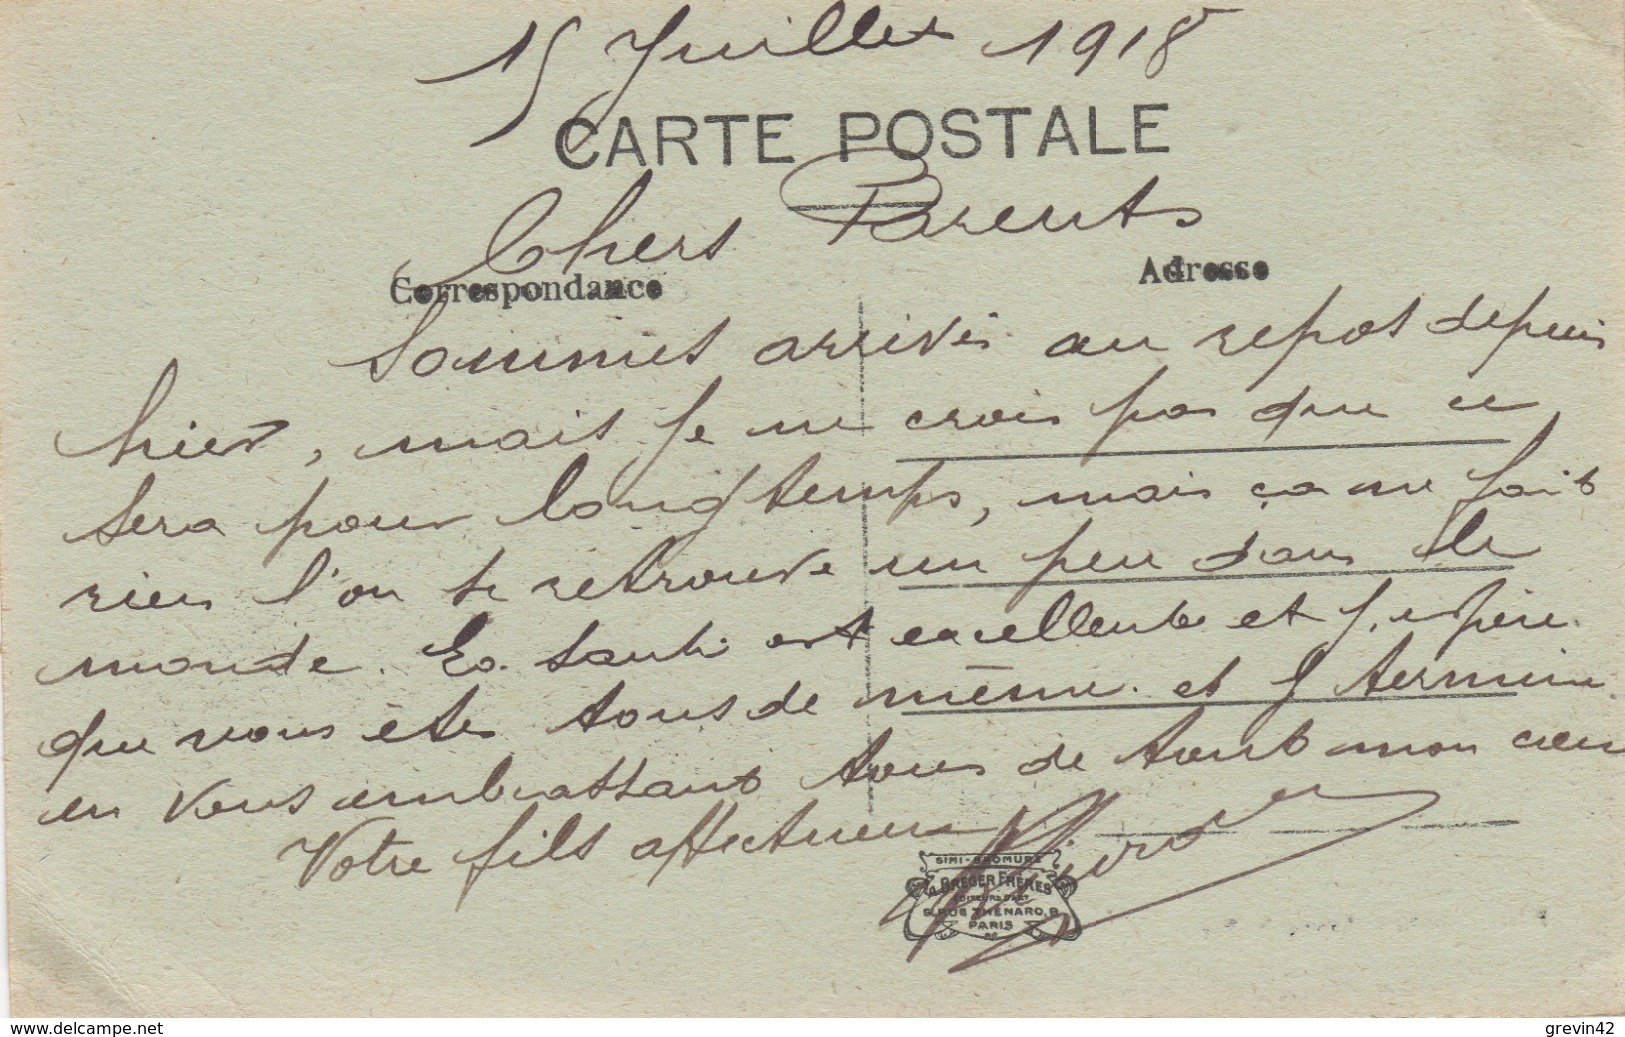 15 Juillet 1918
CARTE POSTALE
Chers Parents
Correspondance
Adresse
Sommes arrivés au repos depuis
hier, mais je ne crois pas que ce
sera pour longtemps, mais ça ne fait
rien l'on se retrouve un peu dans le
monde. La santé est excellente et j'espère
que vous etes tous de même. et je termine
en vous embrassant tous de tout mon cœur
Votre fils affectueux
SIMI-BROMURE
A. BREGER FRÈRES
EDITEURS D'ART
9, RUE THÉNARD, 9
PARIS
www.delcampe.net
grevin42